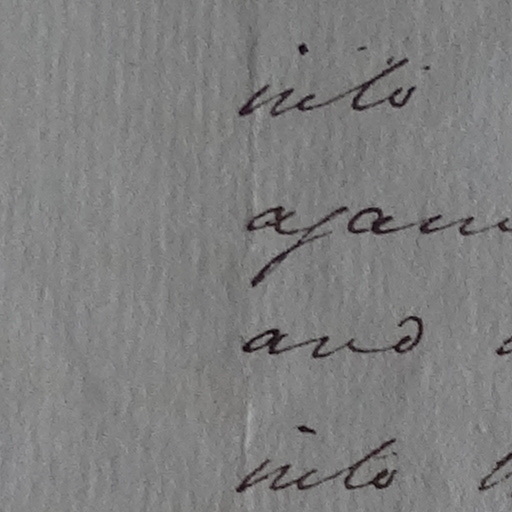 into
again
and
into